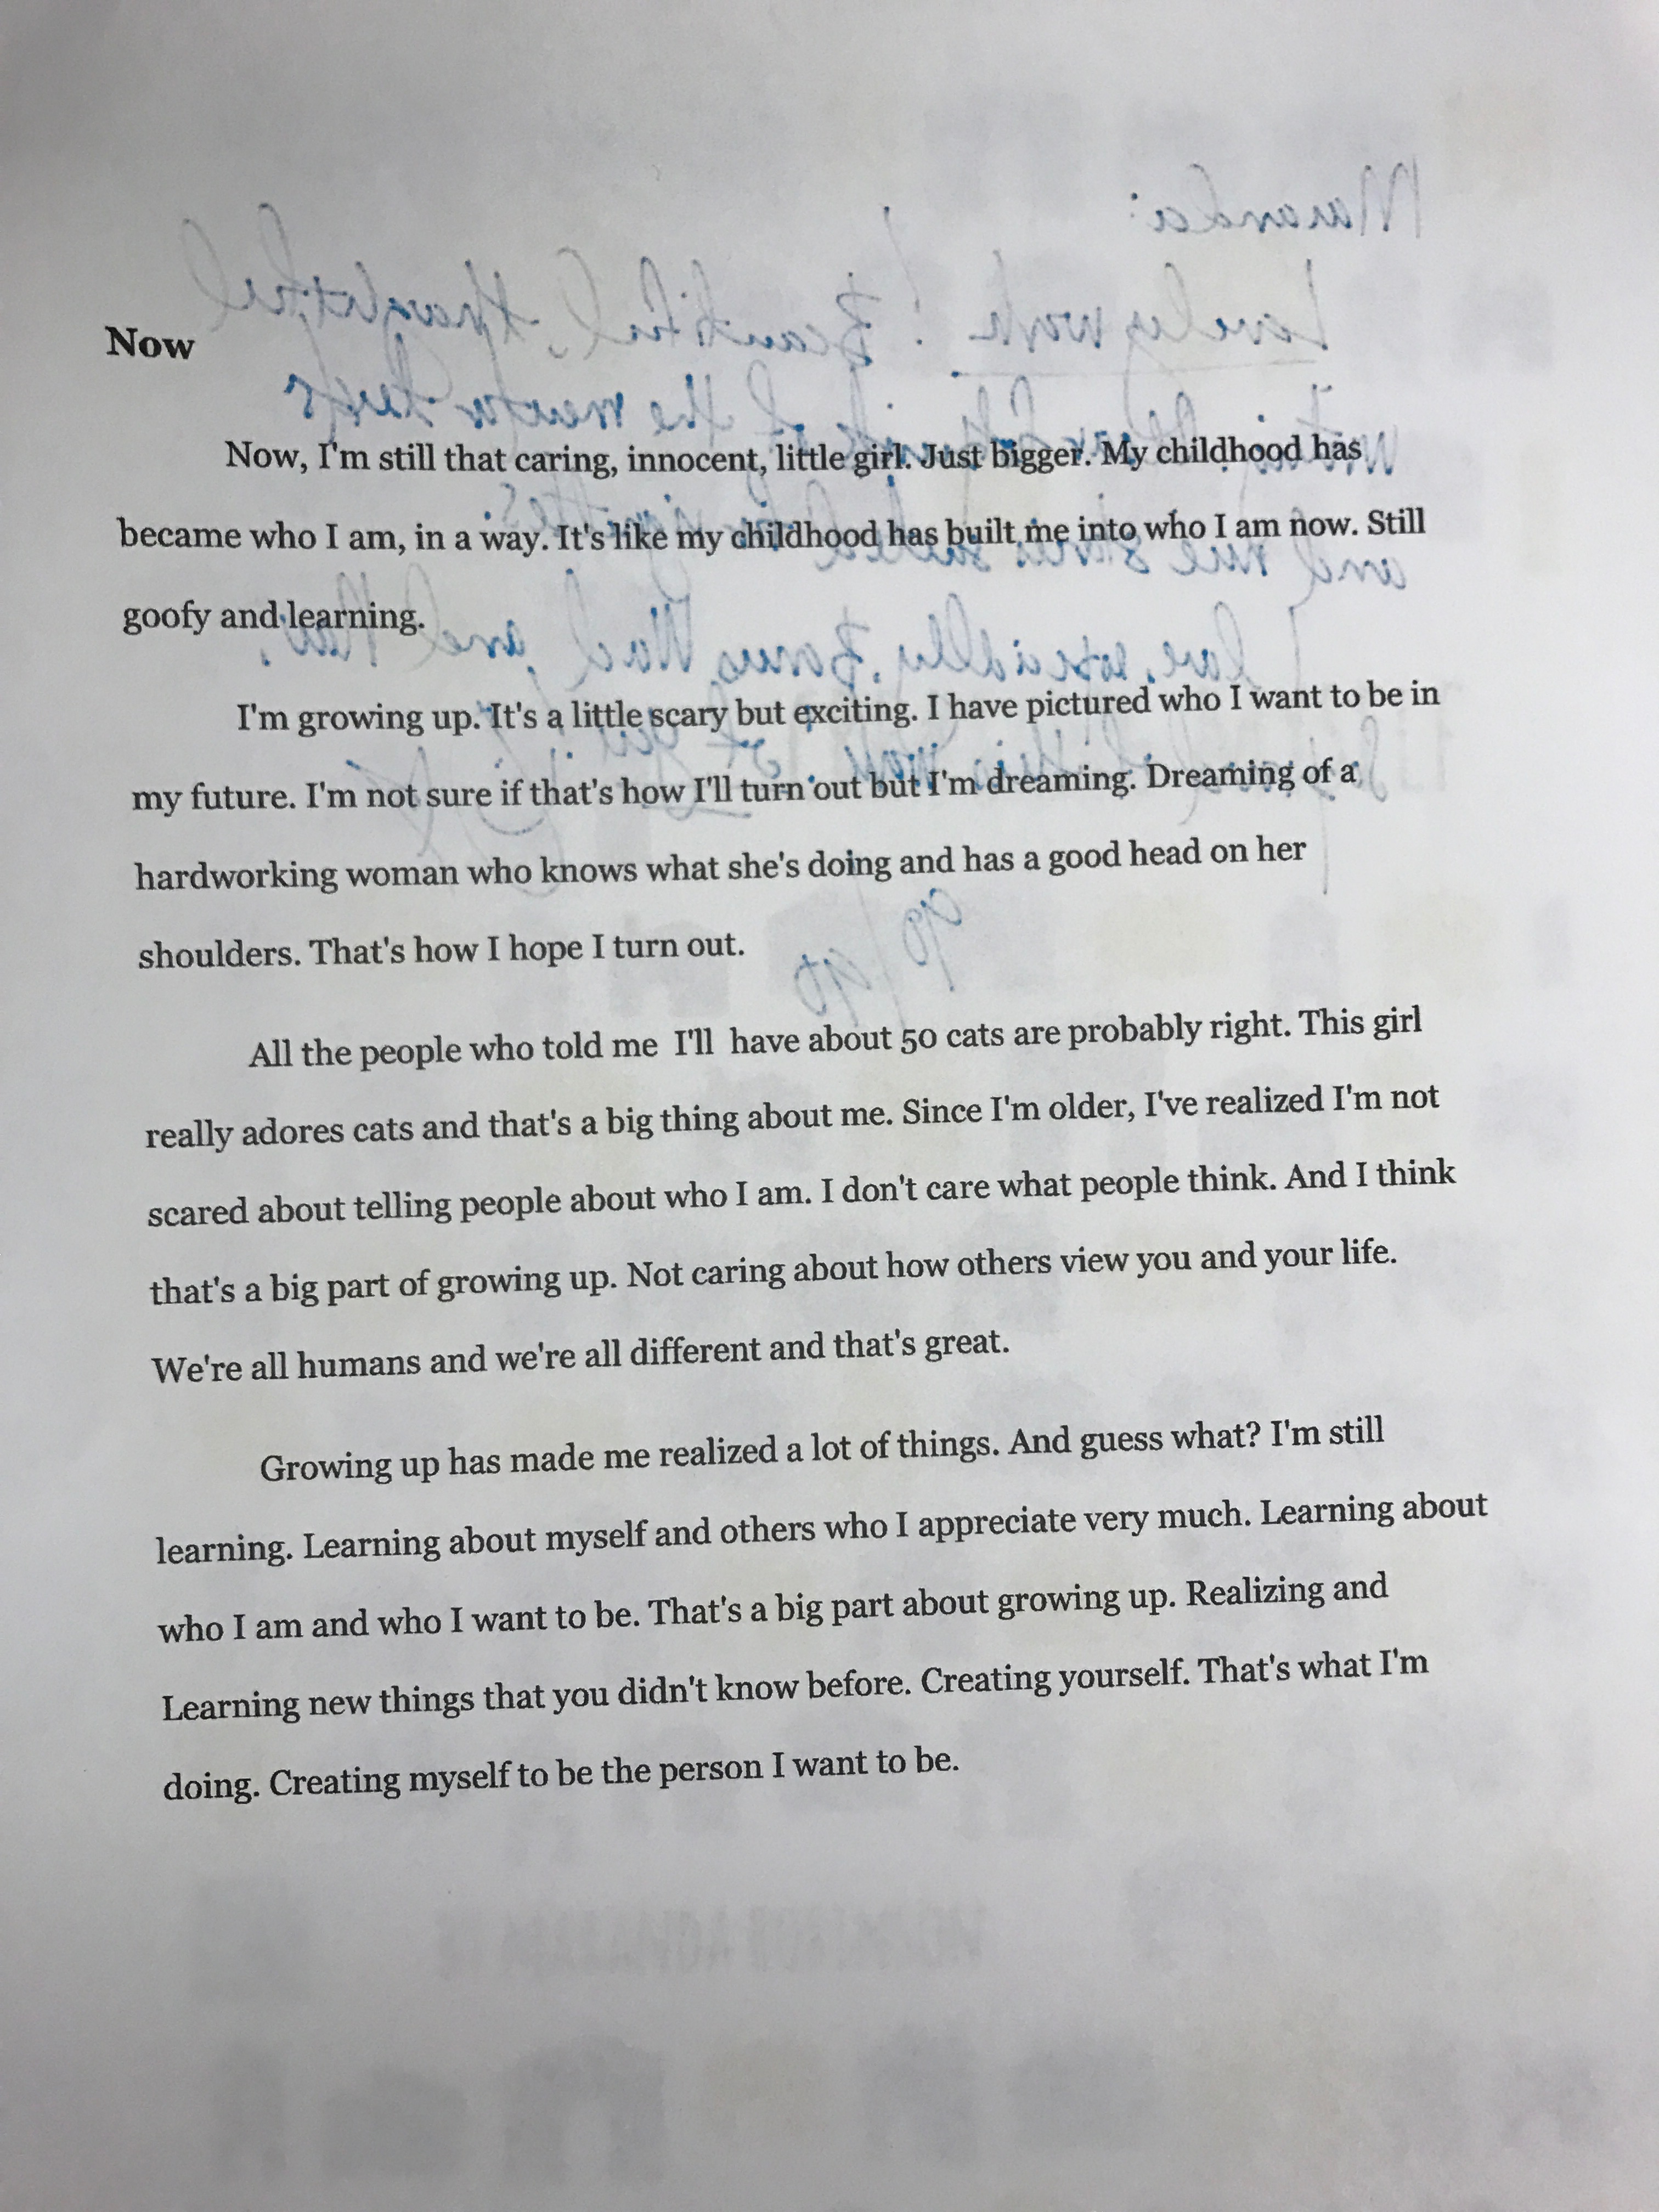 Now
Now, I'm still that caring, innocent, little girl. Just bigger. My childhood has
became who I am, in a way. It's like my childhood has built me into who I am now. Still
goofy and learning.
I'm growing up. It's a little scary but exciting. I have pictured who I want to be in
my future. I'm not sure if that's how I'll turn out but I'm dreaming. Dreaming of a
hardworking woman who knows what she's doing and has a good head on her
shoulders. That's how I hope I turn out.
All the people who told me  I'll  have about 50 cats are probably right. This girl
really adores cats and that's a big thing about me. Since I'm older, I've realized I'm not
scared about telling people about who I am. I don't care what people think. And I think
that's a big part of growing up. Not caring about how others view you and your life.
We're all humans and we're all different and that's great.
Growing up has made me realized a lot of things. And guess what? I'm still
learning. Learning about myself and others who I appreciate very much. Learning about
who I am and who I want to be. That's a big part about growing up. Realizing and
Learning new things that you didn't know before. Creating yourself. That's what I'm
doing. Creating myself to be the person I want to be.